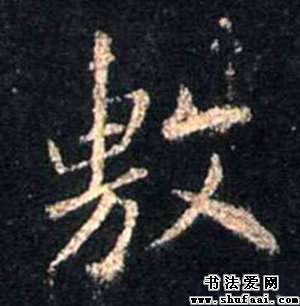 敷
书法爱网
www.shufaai.com